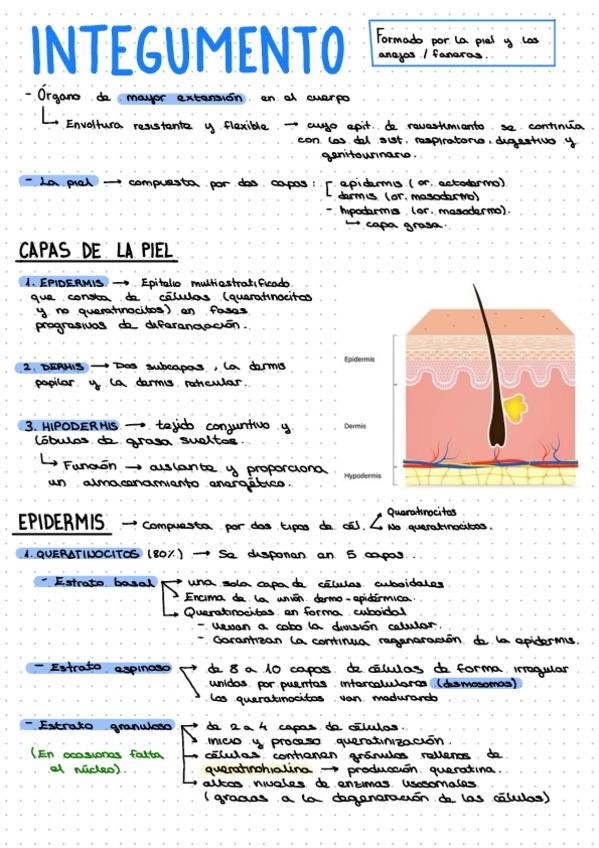 INTEGUMENTO
Formado por la piel y los
anejos / faneras.
- Órgano de mayor extensión en el cuerpo
↳ Envoltura resistente y flexible → cuyo epit. de revestimiento se continúa
con los del sist. respiratorio, digestivo y
genitourinario.
- La piel → compuesta por dos capas: [ epidermis (or. ectodermo)
dermis (or. mesodermo)
- hipodermis (or. mesodermo).
↳ capa grasa.
CAPAS DE LA PIEL
1. EPIDERMIS → Epitelio multiestratificado
que consta de células (queratinocitos
y no queratinocitos) en fases
progresivas de diferenciación.
2. DERMIS → Dos subcapas, la dermis
papilar y la dermis reticular.
3. HIPODERMIS → tejido conjuntivo y
lóbulos de grasa sueltos.
↳ Función → aislante y proporciona
un almacenamiento energético.
Epidermis
Dermis
Hypodermis
EPIDERMIS → Compuesta por dos tipos de cél. Queratinocitos
No queratinocitos.
1. QUERATINOCITOS (80%) → Se disponen en 5 capas...
- Estrato basal → una sola capa de células cuboidales
Encima de la unión dermo-epidérmica.
Queratinocitos en forma cuboidal
- llevan a cabo la división celular.
- Garantizan la continua regeneración de la epidermis.
- Estrato espinoso → de 8 a 10 capas de células de forma irregular
unidas por puentes intercelulares (desmosomas)
los queratinocitos van madurando
- Estrato granuloso → de 2 a 4 capas de células.
inicio y proceso queratinización.
(En ocasiones falta
el núcleo).
células contienen gránulos rellenos de
queratinohialina → producción queratina.
altos niveles de enzimas lisosomales
(gracias a la degeneración de las células)